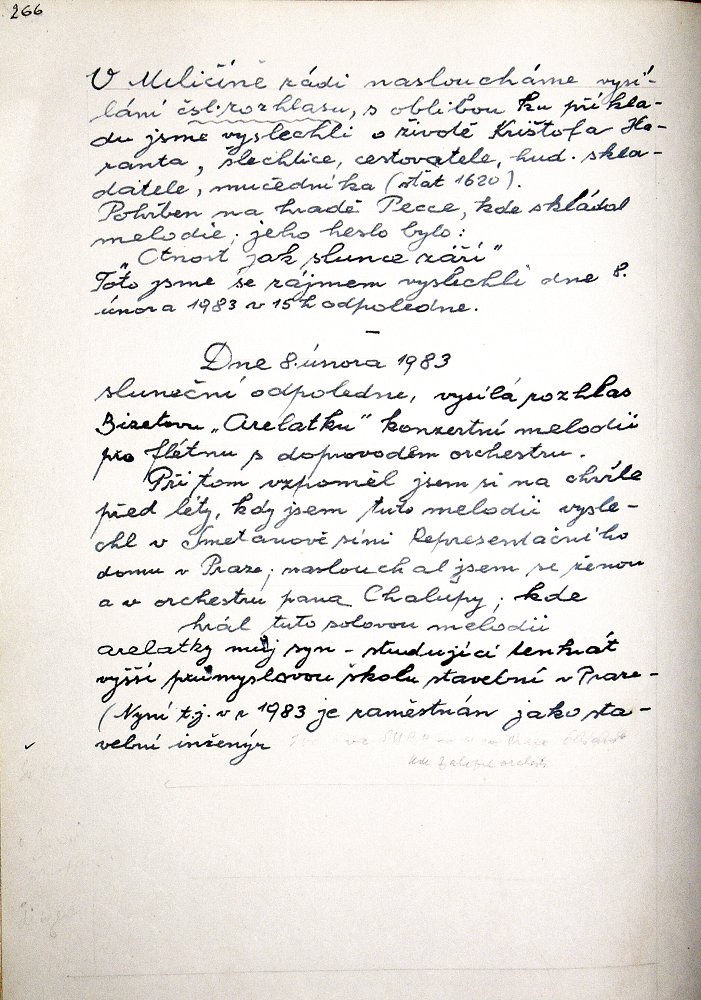 266
V Miličíně rádi nasloucháme vysí-
lání čsl. rozhlasu, s oblibou ku příkla-
du jsme vyslechli o životě Krištofa Ha-
ranta, šlechtice, cestovatele, hud. skla-
datele, mučedníka (stať 1620).
Pohřben na hradě Pecce, kde skládal
melodie; jeho heslo bylo:
"Ctnost jak slunce září"
Toto jsme se zájmem vyslechli dne 8.
února 1983 v 15 h odpoledne.
—
Dne 8. února 1983
sluneční odpoledne, vysílá rozhlas
Bizetovu „Arelatku" konzertní melodii
pro flétnu s doprovodem orchestru.
Při tom vzpoměl jsem si na chvíle
před léty, kdy jsem tuto melodii vysle-
chl v Smetanově síni Representačního
domu v Praze; naslouchal jsem se ženou
a v orchestru pana Chalupy; kde
hrál tuto solovou melodii
arelatky můj syn - studující tenkrát
vyšší průmyslovou školu stavební v Praze-
(Nyní t.j. v r 1983 je zaměstnán jako sta-
vební inženýr
kde založil orchestr